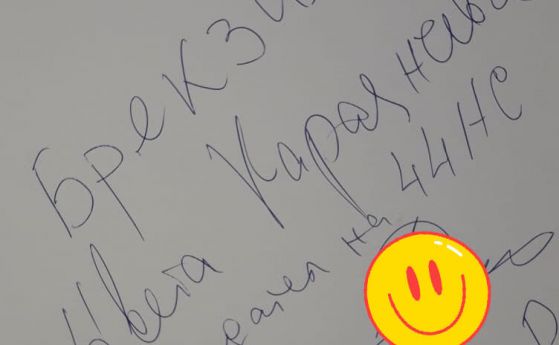 Брекзи
Цвета Караянчев
дател на 44 НС